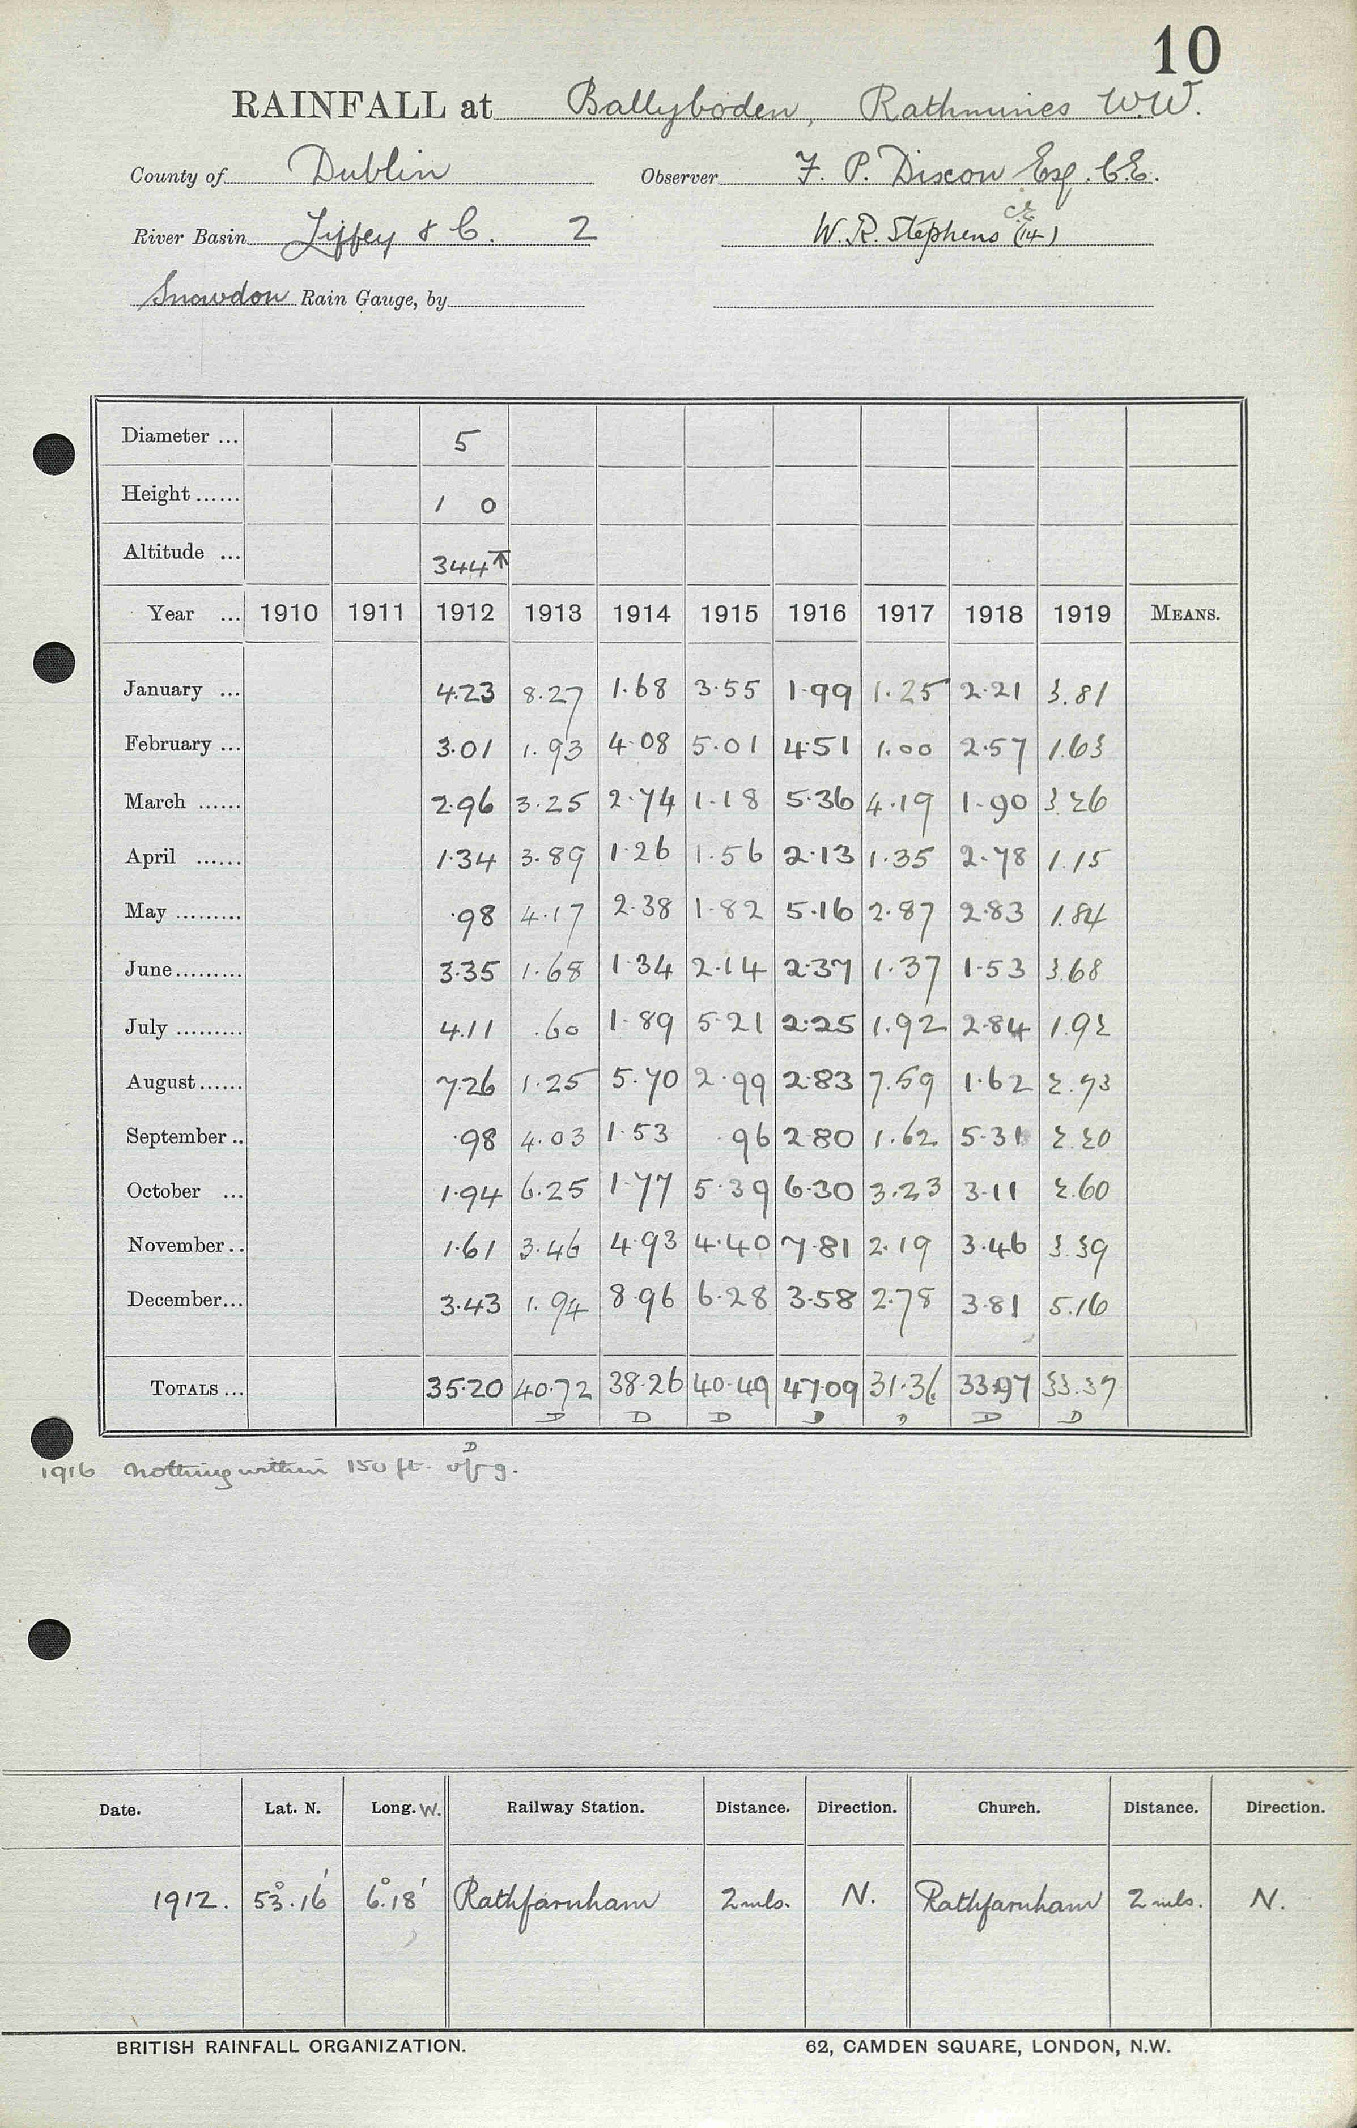 10
RAINFALL at Ballyboden, Rathmines W.W.
County of Dublin Observer F. P. Dixon Esq. C.E.
River Basin Liffey & C. 2 W. R. Stephens C.E. (14)
Snowdon Rain Gauge, by
Diameter ... 5
Height ...... 1 0
Altitude ... 344
Year ... 1910 1911 1912 1913 1914 1915 1916 1917 1918 1919 MEANS.
January ... 4.23 8.27 1.68 3.55 1.99 1.25 2.21 3.81
February ... 3.01 1.93 4.08 5.01 4.51 1.00 2.57 1.63
March ...... 2.96 3.25 2.74 1.18 5.36 4.19 1.90 3.26
April ...... 1.34 3.89 1.26 1.56 2.13 1.35 2.78 1.15
May ......... .98 4.17 2.38 1.82 5.16 2.87 2.83 1.84
June ......... 3.35 1.68 1.34 2.14 2.37 1.37 1.53 3.68
July ......... 4.11 .60 1.89 5.21 2.25 1.92 2.84 1.92
August ...... 7.26 1.25 5.70 2.99 2.83 7.59 1.62 2.73
September .. .98 4.03 1.53 .96 2.80 1.62 5.31 2.20
October ... 1.94 6.25 1.77 5.39 6.30 3.23 3.11 2.60
November .. 1.61 3.46 4.93 4.40 7.81 2.19 3.46 3.39
December ... 3.43 1.94 8.96 6.28 3.58 2.78 3.81 5.16
TOTALS ... 35.20 40.72 38.26 40.49 47.09 31.36 33.97 33.37
D D D D D D D
D
1916 nothing within 150 ft. of g.
Date. Lat. N. Long. W. Railway Station. Distance. Direction. Church. Distance. Direction.
1912. 53°.16' 6°.18' Rathfarnham 2 mls. N. Rathfarnham 2 mls. N.
BRITISH RAINFALL ORGANIZATION. 62, CAMDEN SQUARE, LONDON, N.W.